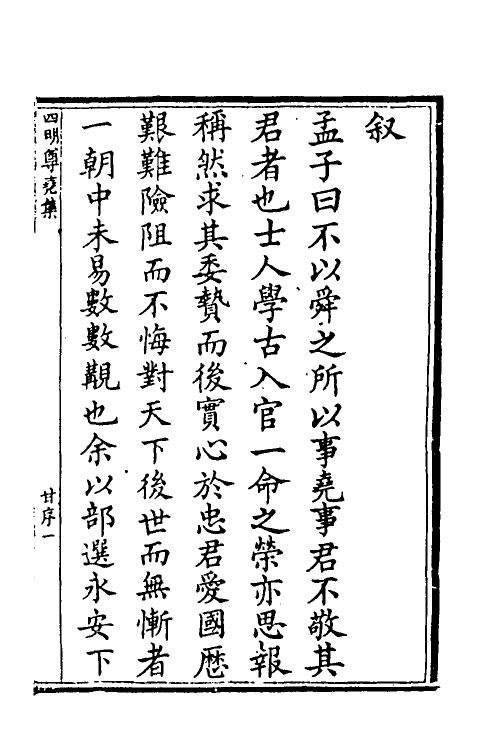 叙
孟子曰不以舜之所以事堯事君不敬其
君者也士人學古入官一命之榮亦思報
稱然求其委贄而後實心於忠君愛國歷
艱難險阻而不悔對天下後世而無慚者
一朝中未易數數覯也余以部選永安下
四明尊堯集
甘序一